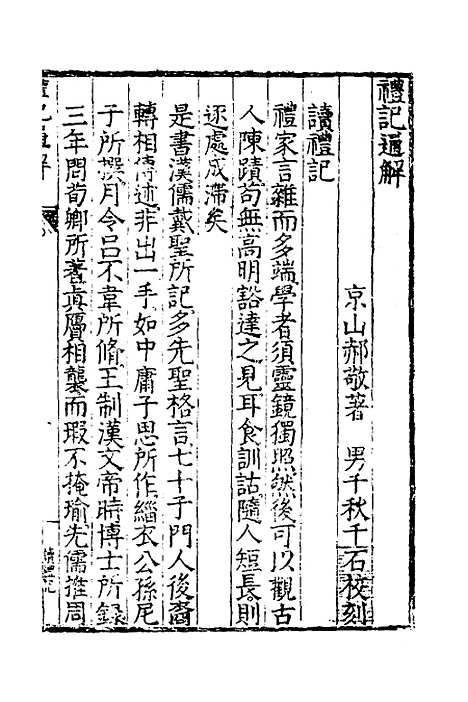 禮記通解
京山郝敬著　男千秋千石校刻
讀禮記
禮家言雜而多端學者須靈鏡獨照然後可以觀古
人陳蹟苟無高明豁達之見耳食訓詁隨人短長則
逐處成滯矣
是書漢儒戴聖所記多先聖格言七十子門人後裔
轉相傳述非出一手如中庸子思所作緇衣公孫尼
子所撰月令呂不韋所脩王制漢文帝時博士所錄
三年問荀卿所著眞贋相襲而瑕不掩瑜先儒推周
禮記通解
讀禮記